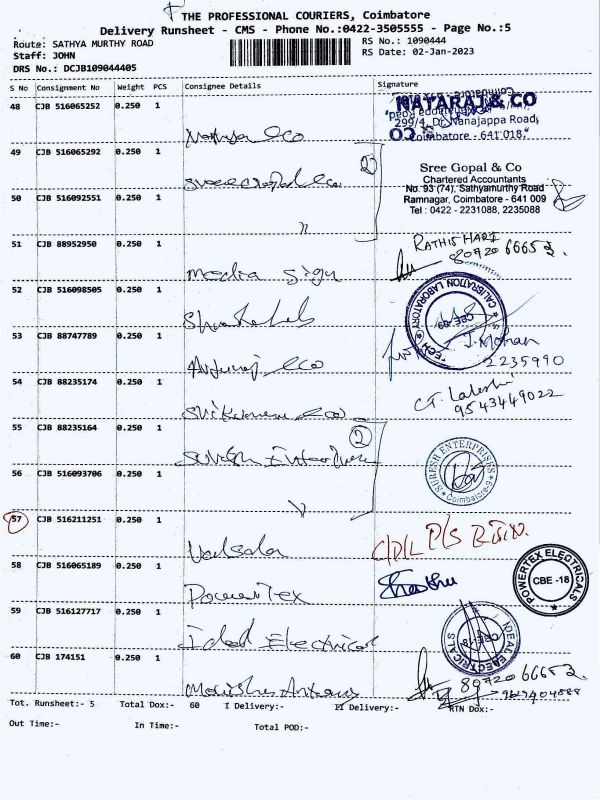 THE PROFESSIONAL COURIERS, Coimbatore
Delivery Runsheet - CMS - Phone No.:0422-3505555 - Page No.:5
Route: SATHYA MURTHY ROAD
RS No.: 1090444
Staff: JOHN
RS Date: 02-Jan-2023
DRS No.: DCJB109044405
S No Consignment No Weight PCS Consignee Details Signature
48 CJB 516065252 0.250 1
NATARAJ & CO
299/4, Dr. Nanajappa Road,
Coimbatore - 641 018.
49 CJB 516065292 0.250 1 Sree Gopal & Co
2
Sree Gopal & Co
Chartered Accountants
No. 93 (74), Sathyamurthy Road
Ramnagar, Coimbatore - 641 009
Tel : 0422 - 2231088, 2235088
50 CJB 516092551 0.250 1 "
51 CJB 88952950 0.250 1 Media Sign
RATHIS HARI
80720 66653
52 CJB 516098505 0.250 1
TECH CALIBRATION LABORATORY
CBE-09
53 CJB 88747789 0.250 1
J. Mohan
2235990
54 CJB 88235174 0.250 1
9543449022
55 CJB 88235164 0.250 1 Suresh Enterprises
2
SURESH ENTERPRISES
Coimbatore-9
56 CJB 516093706 0.250 1 "
57 CJB 516211251 0.250 1 Valsala
C/D/L P/S
58 CJB 516065189 0.250 1 PowerTex
POWERTEX ELECTRICALS
CBE -18
59 CJB 516127717 0.250 1 Ideal Electrical
IDEAL ELECTRICALS
CBE-18
60 CJB 174151 0.250 1
80720 66653
Tot. Runsheet:- 5 Total Dox:- 60 I Delivery:- II Delivery:- RTN Dox:-
Out Time:- In Time:- Total POD:-